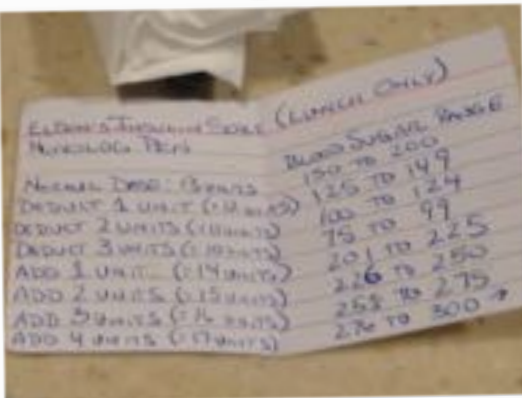 Insulin Scale (Lunch Only)
Humolog Pen Blood Sugar Range
Normal Dose: 13 units 150 to 200
Deduct 1 unit (=12 units) 125 to 149
Deduct 2 units (=11 units) 100 to 124
Deduct 3 units (=10 units) 75 to 99
Add 1 unit (=14 units) 201 to 225
Add 2 units (=15 units) 226 to 250
Add 3 units (=16 units) 258 to 275
Add 4 units (=17 units) 276 to 300 →